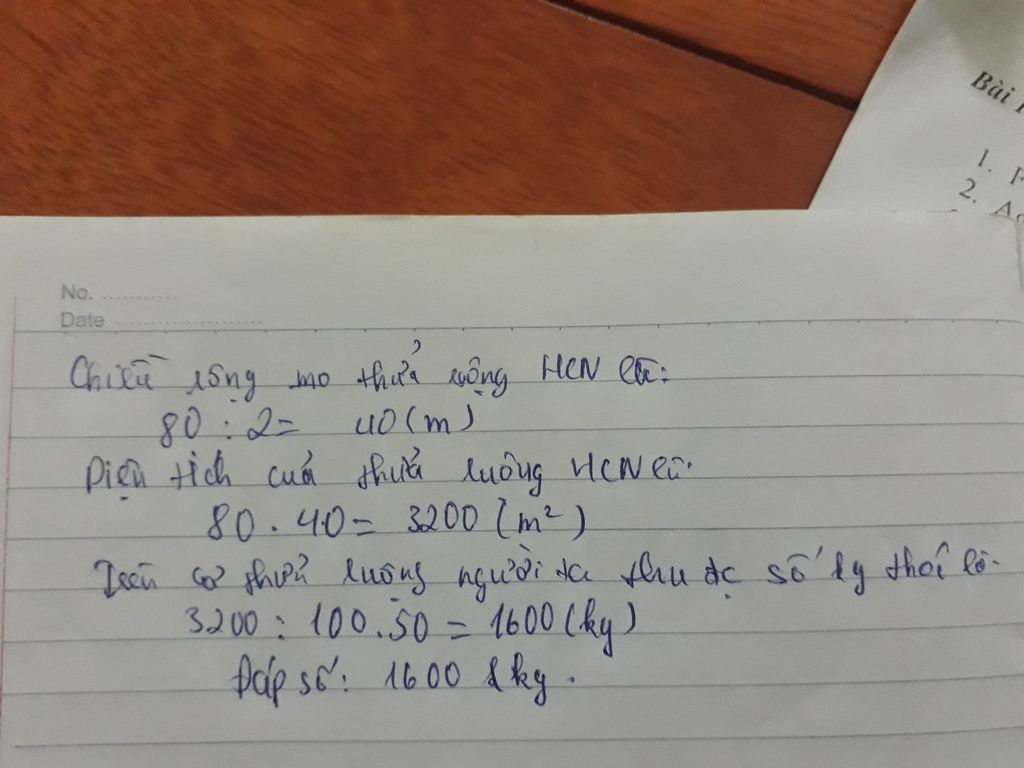 Bài
1. F
2. Ac
No. ............
Date ........................
Chiều rộng thửa ruộng HCN là:
80 : 2 = 40 (m)
Diện tích của thửa ruộng HCN là:
80 . 40 = 3200 (m²)
Trên cả thửa ruộng người ta thu đc số kg thóc là:
3200 : 100 . 50 = 1600 (kg)
Đáp số: 1600 kg.